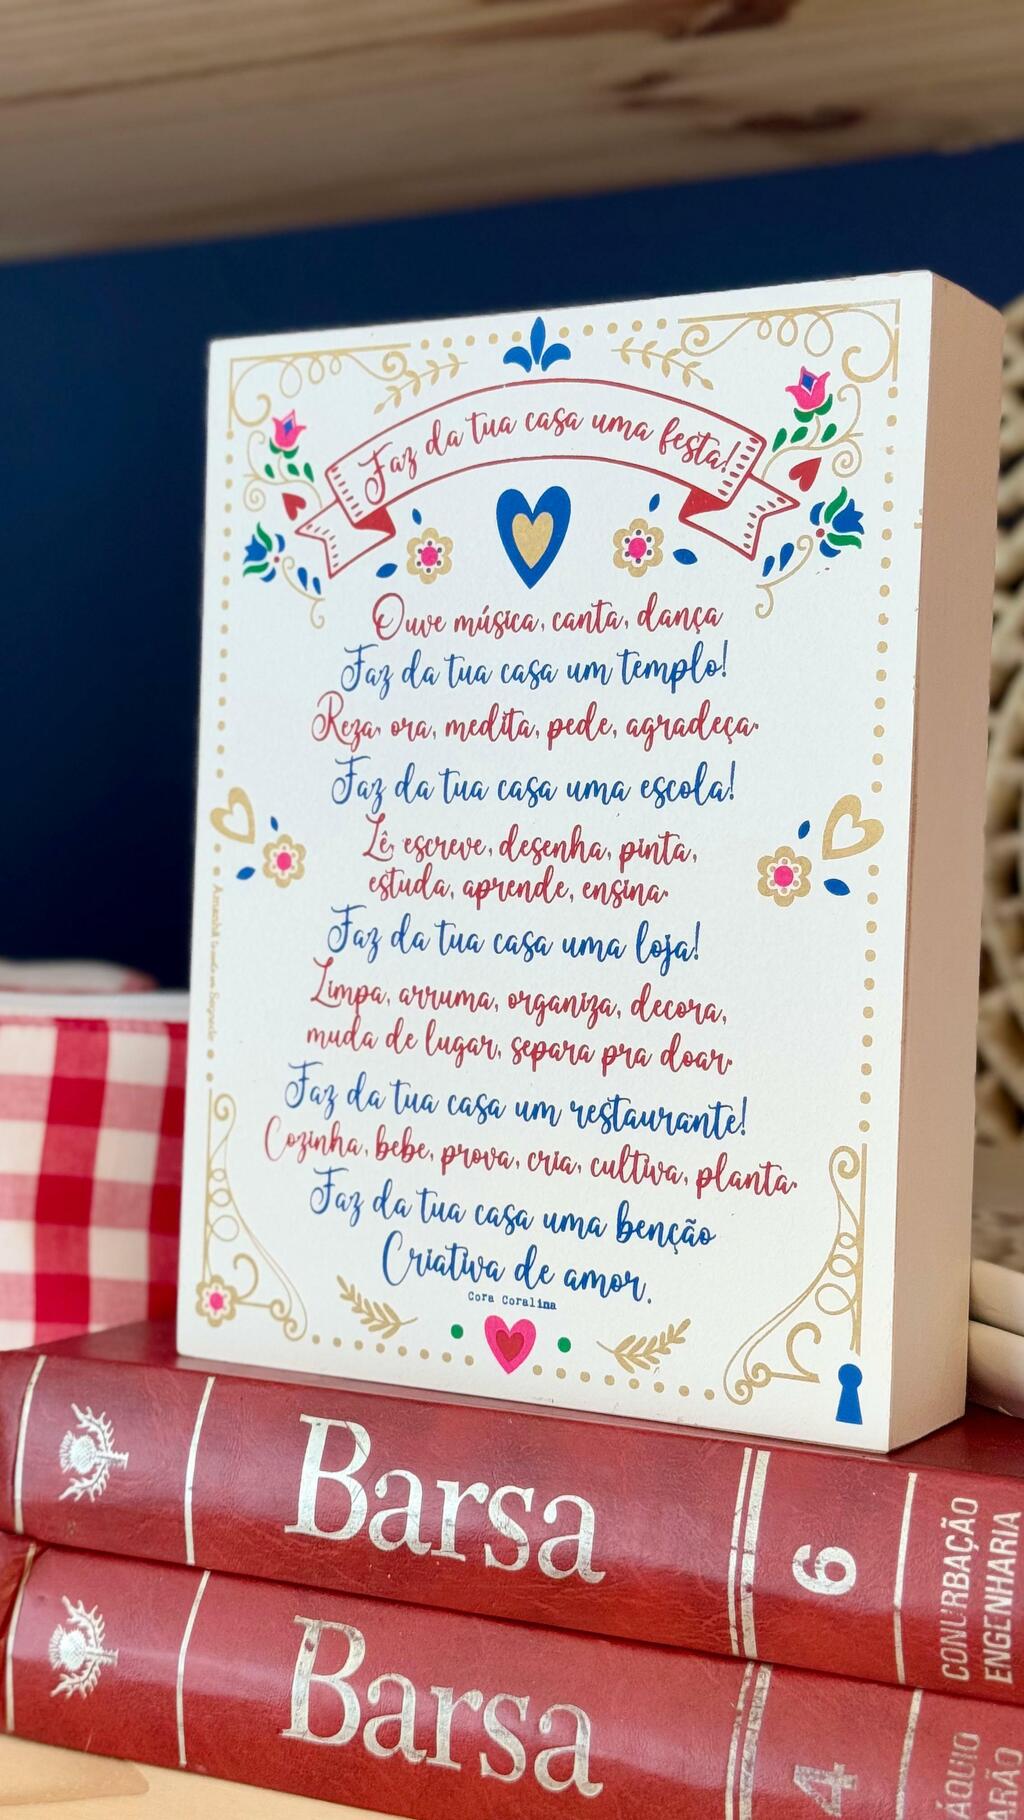 Faz da tua casa uma festa!
Ouve música, canta, dança
Faz da tua casa um templo!
Reza, ora, medita, pede, agradeça.
Faz da tua casa uma escola!
Lê, escreve, desenha, pinta,
estuda, aprende, ensina.
Faz da tua casa uma loja!
Limpa, arruma, organiza, decora,
muda de lugar, separa pra doar.
Faz da tua casa um restaurante!
Cozinha, bebe, prova, cria, cultiva, planta.
Faz da tua casa uma benção
Criativa de amor.
Cora Coralina
Barsa
6
CONURBAÇÃO
ENGENHARIA
Barsa
4